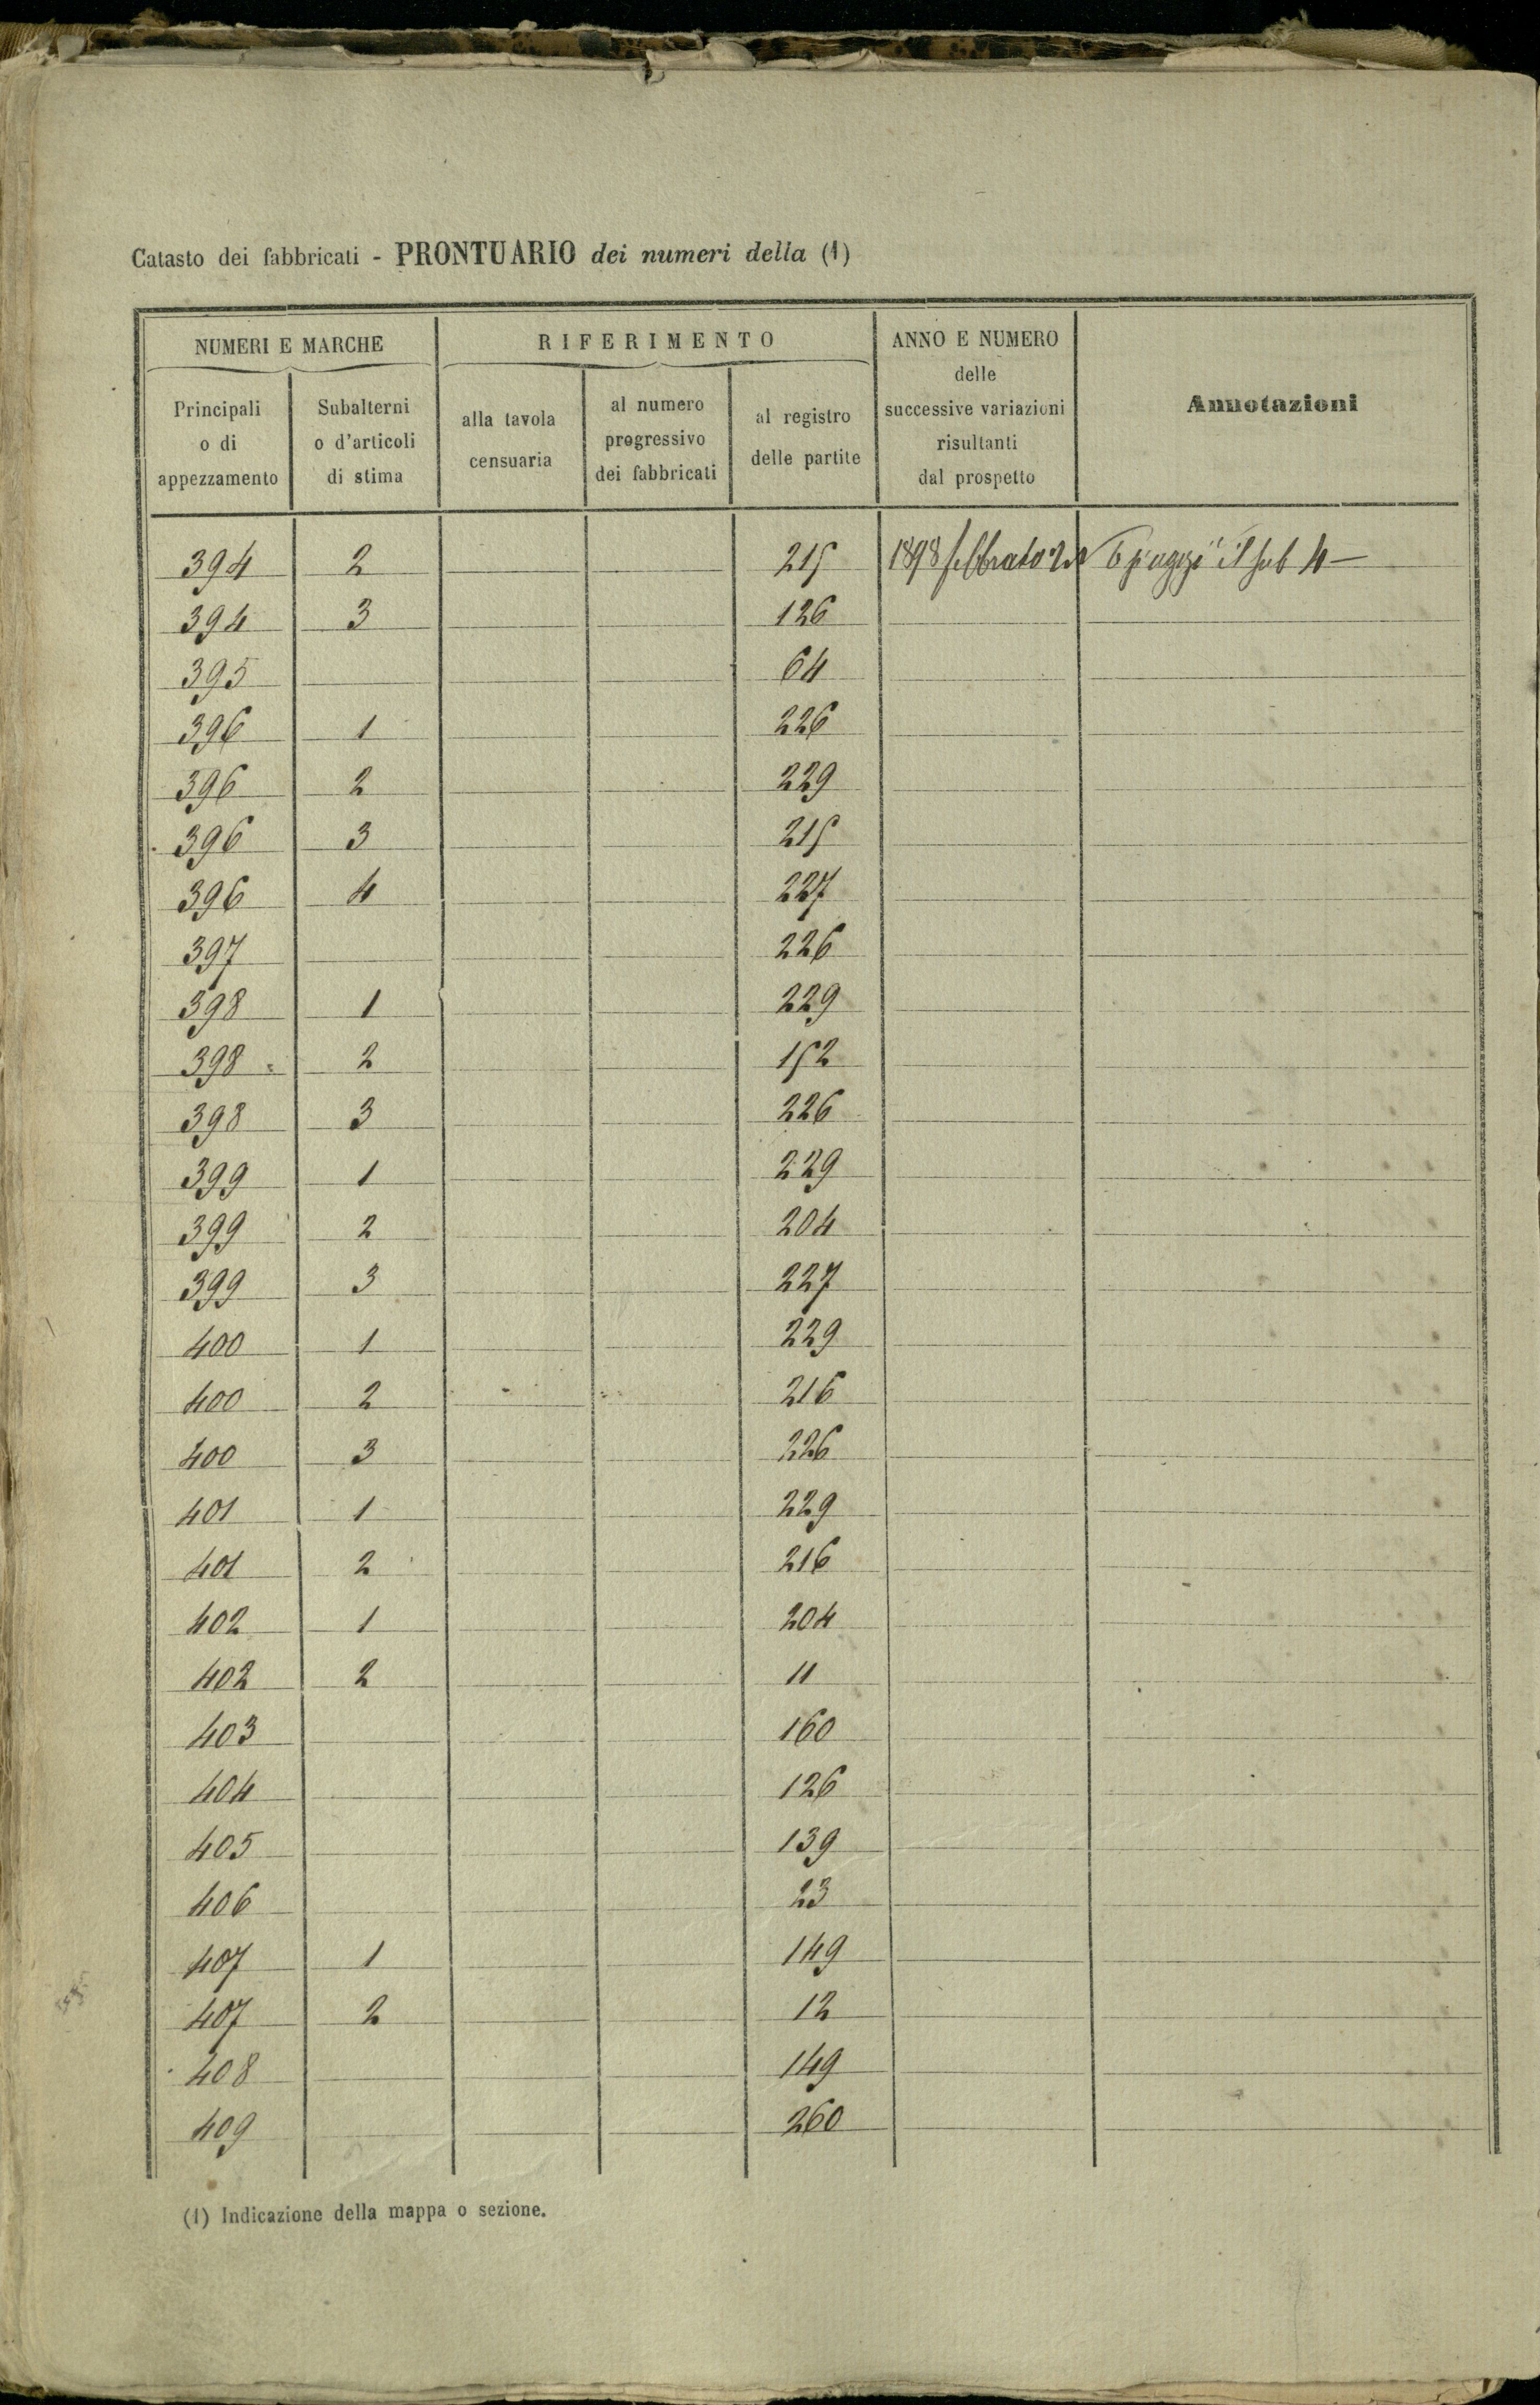 Catasto dei fabbricati - PRONTUARIO dei numeri della (1)
NUMERI E MARCHE
RIFERIMENTO
ANNO E NUMERO
delle
successive variazioni
risultanti
dal prospetto
Annotazioni
Principali
o di
appezzamento
Subalterni
o d'articoli
di stima
alla tavola
censuaria
al numero
progressivo
dei fabbricati
al registro
delle partite
394 2 215 1898 febbraio il sub 4 —
394 3 126
395 64
396 1 226
396 2 229
396 3 215
396 4 227
397 226
398 1 229
398 2 152
398 3 226
399 1 229
399 2 204
399 3 227
400 1 229
400 2 216
400 3 226
401 1 229
401 2 216
402 1 204
402 2 11
403 160
404 126
405 139
406 23
407 1 149
407 2 12
408 149
409 260
(1) Indicazione della mappa o sezione.